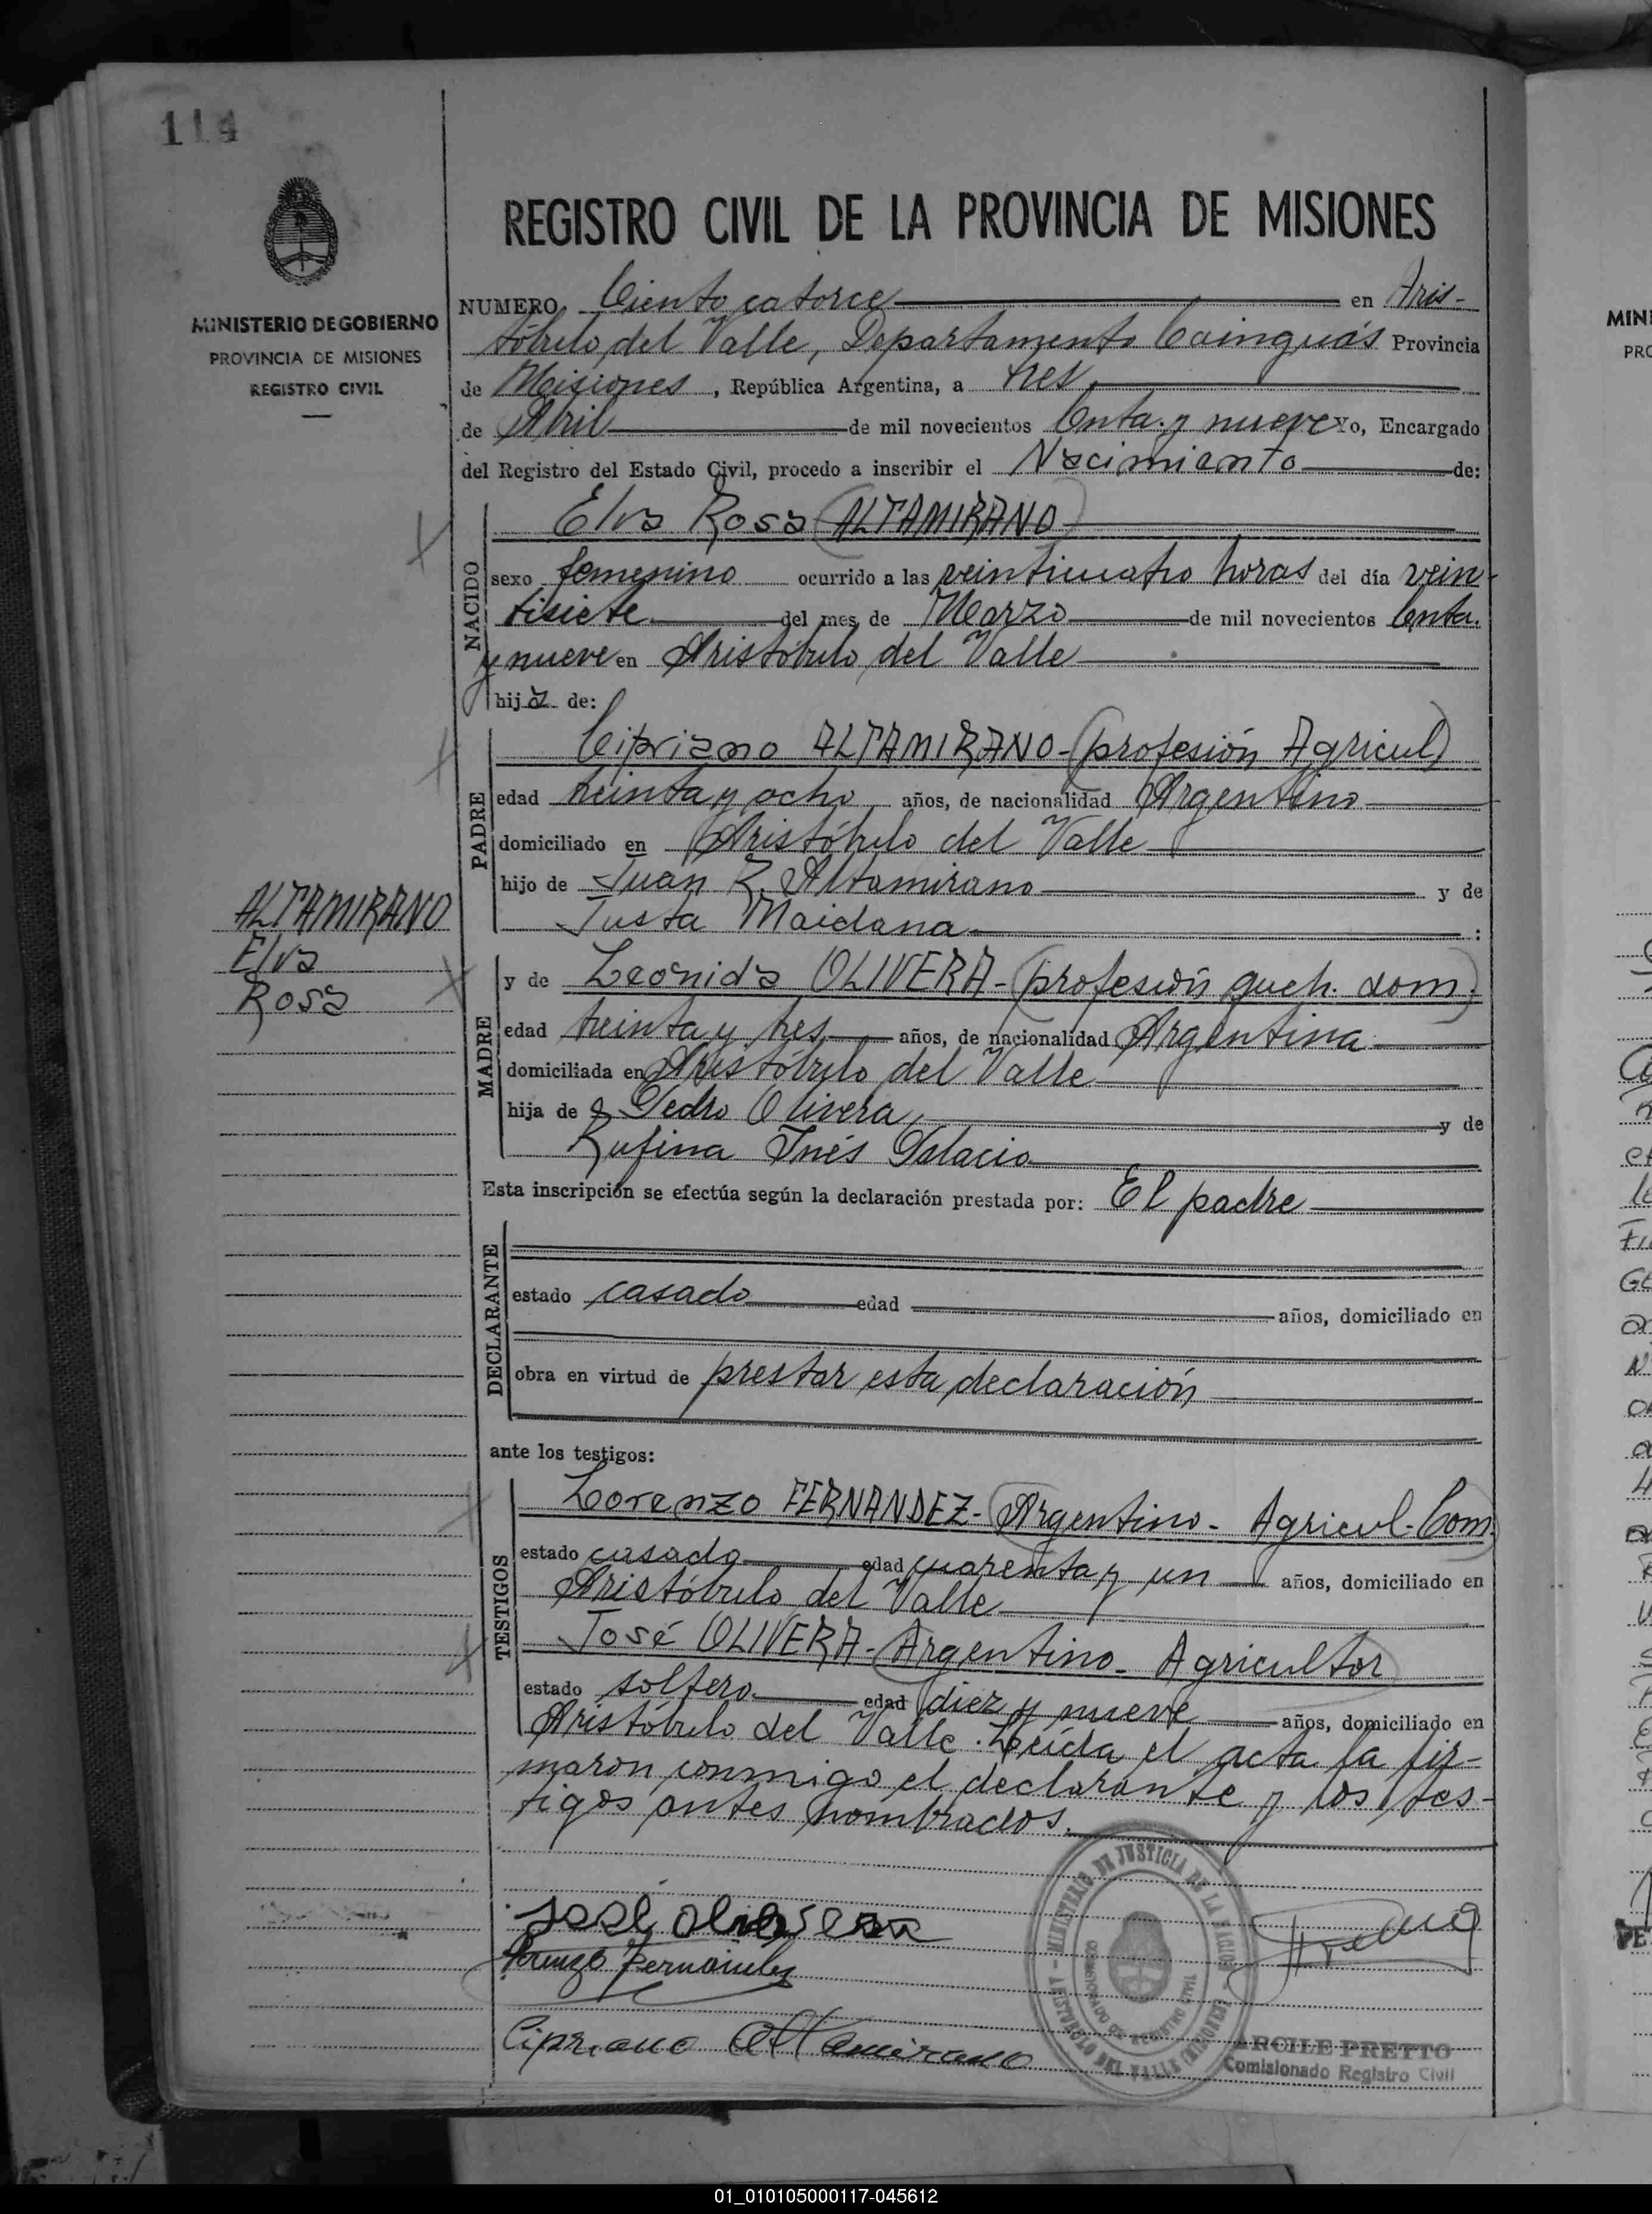 114
MINISTERIO DE GOBIERNO
PROVINCIA DE MISIONES
REGISTRO CIVIL
REGISTRO CIVIL DE LA PROVINCIA DE MISIONES
NUMERO Ciento catorce en Aris-
tóbulo del Valle, Departamento Cainguás Provincia
de Misiones, República Argentina, a tres
de Abril de mil novecientos Cnta. y nueve yo, Encargado
del Registro del Estado Civil, procedo a inscribir el Nacimiento de:
NACIDO
Elva Rosa (ALTAMIRANO)
sexo femenino ocurrido a las veinticuatro horas del día vein-
tisiete del mes de Marzo de mil novecientos Cnta.
y nueve en Aristóbulo del Valle
hija de:
PADRE
Cipriano ALTAMIRANO-(profesión Agricul)
edad treinta y ocho años, de nacionalidad Argentino
domiciliado en Aristóbulo del Valle
hijo de Juan R. Altamirano y de
Justa Maidana :
ALTAMIRANO
Elva
Rosa
MADRE
y de Leónida OLIVERA-(profesión queh. dom.)
edad treinta y tres años, de nacionalidad Argentina
domiciliada en Aristóbulo del Valle
hija de Pedro Olivera y de
Rufina Inés Palacio
Esta inscripción se efectúa según la declaración prestada por: El padre
DECLARANTE
estado casado edad años, domiciliado en
obra en virtud de prestar esta declaración
ante los testigos:
TESTIGOS
Lorenzo FERNANDEZ-(Argentino- Agricul-Com.)
estado casado edad cuarenta y un años, domiciliado en
Aristóbulo del Valle
José OLIVERA-(Argentino- Agricultor)
estado soltero edad diez y nueve años, domiciliado en
Aristóbulo del Valle. Leída el acta la fir-
maron conmigo el declarante y los tes-
tigos antes nombrados.
José Olivera
Lorenzo Fernández
Cipriano Altamirano
MINISTERIO DE JUSTICIA DE LA NACION
ARISTOBULO DEL VALLE (MISIONES)
ARCILE PRETTO
Comisionado Registro Civil
01_010105000117-045612